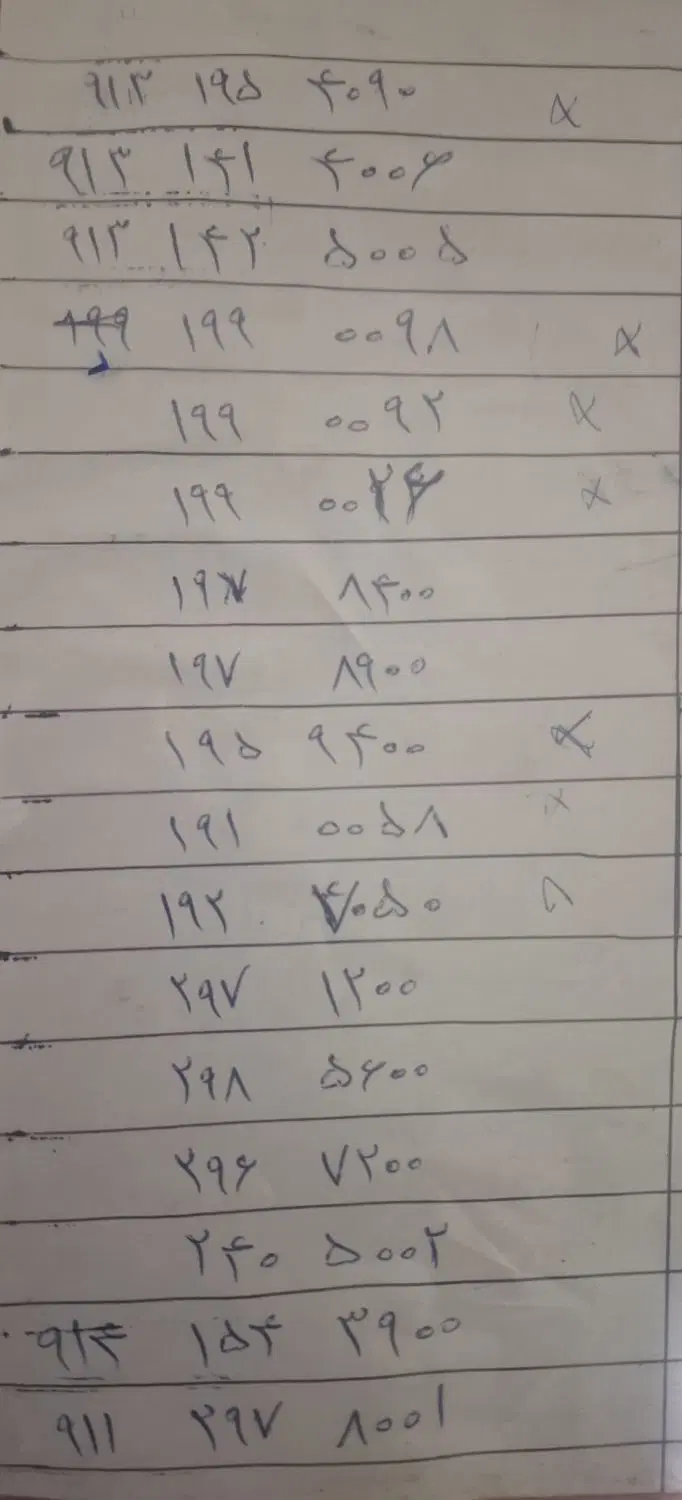 ۹۱۳ ۱۹۵ ۴۰۹۰
۹۱۳ ۱۴۱ ۴۰۰۶
۹۱۳ ۱۴۲ ۵۰۰۵
۱۹۹ ۱۹۹ ۰۰۹۸
۱۹۹ ۰۰۹۲
۱۹۹ ۰۰۲۶
۱۹۷ ۸۴۰۰
۱۹۷ ۸۹۰۰
۱۹۵ ۹۴۰۰
۱۹۱ ۰۰۵۸
۱۹۲ ۷۰۵۰
۲۹۷ ۱۲۰۰
۲۹۸ ۵۶۰۰
۲۹۶ ۷۲۰۰
۲۴۰ ۵۰۰۲
۹۱۴ ۱۵۴ ۳۹۰۰
۹۱۱ ۲۹۷ ۸۰۰۱